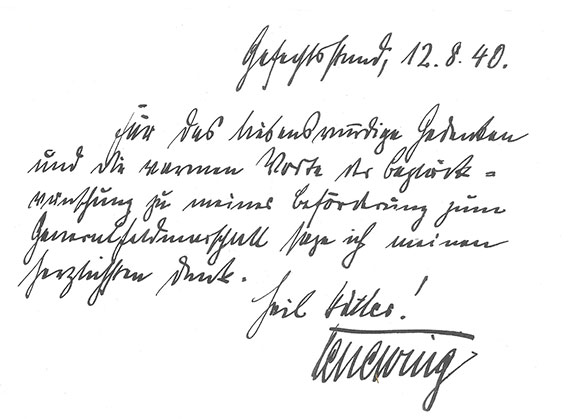 Gefechtsstand, 12.8.40.
Für das liebenswürdige Gedenken
und die warmen Worte der Beglück-
wünschung zu meiner Beförderung zum
Generalfeldmarschall sage ich meinen
herzlichsten Dank.
Heil Hitler!